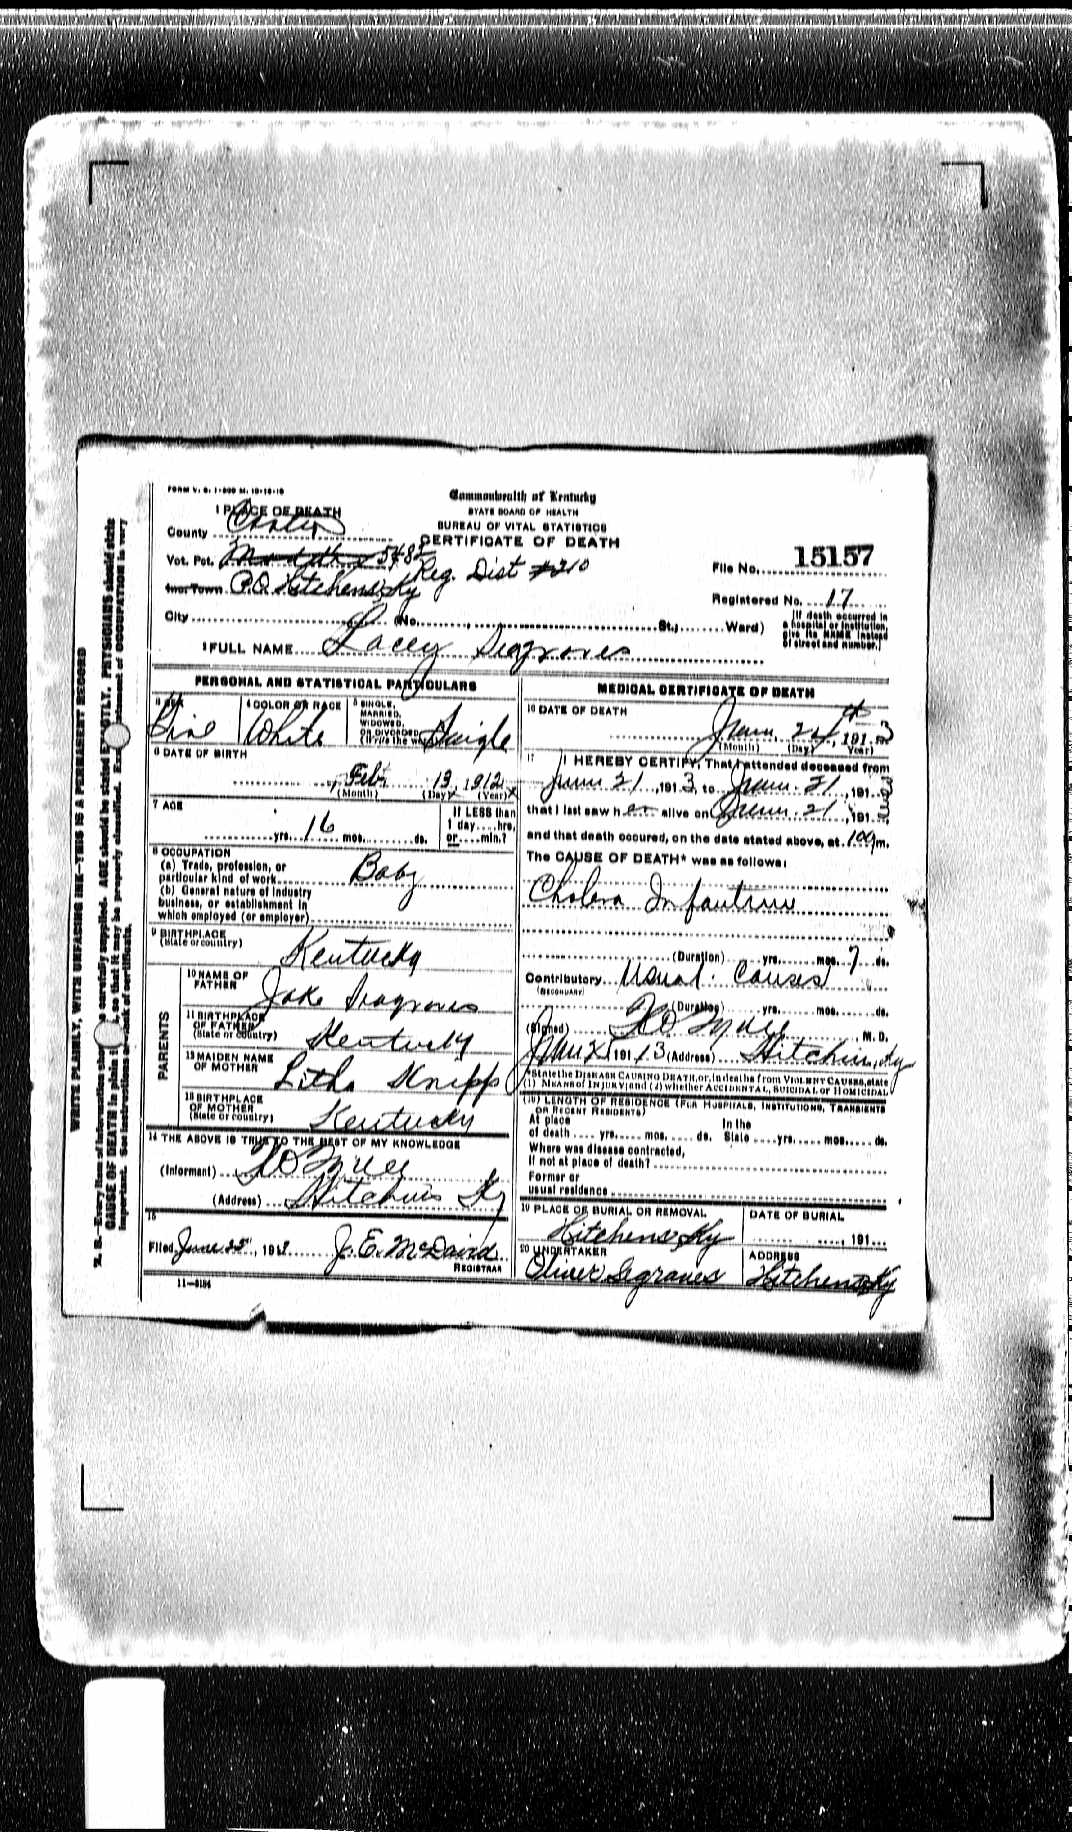 FORM V. S. 1-
Commonwealth of Kentucky
STATE BOARD OF HEALTH
BUREAU OF VITAL STATISTICS
CERTIFICATE OF DEATH
1 PLACE OF DEATH
County Carter
Vot. Pct. 5482 Reg. Dist #210
Inc. Town P.O. Hitchens Ky
City (No. St.; Ward)
File No. 15157
Registered No. 17
(If death occurred in
a hospital or institution,
give its NAME instead
of street and number.)
2 FULL NAME Lacey Segraves
PERSONAL AND STATISTICAL PARTICULARS
3 SEX
4 COLOR OR RACE White
5 SINGLE,
MARRIED,
WIDOWED,
OR DIVORCED
(Write the word) Single
6 DATE OF BIRTH
Feb 13, 1912
(Month) (Day) (Year)
7 AGE
yrs. 16 mos. ds.
If LESS than
1 day.... hrs.
or.... min.?
8 OCCUPATION
(a) Trade, profession, or
particular kind of work Baby
(b) General nature of industry
business, or establishment in
which employed (or employer)
9 BIRTHPLACE
(State or country) Kentucky
PARENTS
10 NAME OF
FATHER Jake Seagraves
11 BIRTHPLACE
OF FATHER
(State or country) Kentucky
12 MAIDEN NAME
OF MOTHER Litha Knipp
13 BIRTHPLACE
OF MOTHER
(State or country) Kentucky
14 THE ABOVE IS TRUE TO THE BEST OF MY KNOWLEDGE
(Informant)
(Address) Hitchins Ky
15
Filed June 25, 191 J. E. McDavid
REGISTRAR
11-3184
MEDICAL CERTIFICATE OF DEATH
16 DATE OF DEATH
June 24th, 1913
(Month) (Day) (Year)
17 I HEREBY CERTIFY, That I attended deceased from
June 21, 1913, to June 21, 191
that I last saw h er alive on June 21, 191
and that death occured, on the date stated above, at m.
The CAUSE OF DEATH* was as follows:
Cholera Infantum
(Duration) yrs. mos. 7 ds.
Contributory Usual Causes
(SECONDARY)
(Duration) yrs. mos. ds.
(Signed) M. D.
1913 (Address) Hitchins, Ky
*State the DISEASE CAUSING DEATH, or, in deaths from VIOLENT CAUSES, state
(1) MEANS OF INJURY; and (2) whether ACCIDENTAL, SUICIDAL, OF HOMICIDAL
(18) LENGTH OF RESIDENCE (FOR HOSPITALS, INSTITUTIONS, TRANSIENTS
OR RECENT RESIDENTS)
At place In the
of death.... yrs..... mos..... ds. State.... yrs..... mos..... ds.
Where was disease contracted,
If not at place of death?
Former or
usual residence
19 PLACE OF BURIAL OR REMOVAL
Hitchens, Ky
DATE OF BURIAL
, 191
20 UNDERTAKER
Oliver Segraves
ADDRESS
Hitchens Ky
WRITE PLAINLY, WITH UNFADING INK—THIS IS A PERMANENT RECORD
N. B.—Every item of information should be carefully supplied. AGE should be stated EXACTLY. PHYSICIANS should state
CAUSE OF DEATH in plain so that it may be properly classified. statement of OCCUPATION is very
important. See instructions on back of certificate.